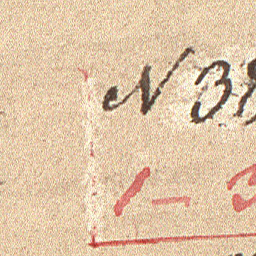 N 38
1 – 3